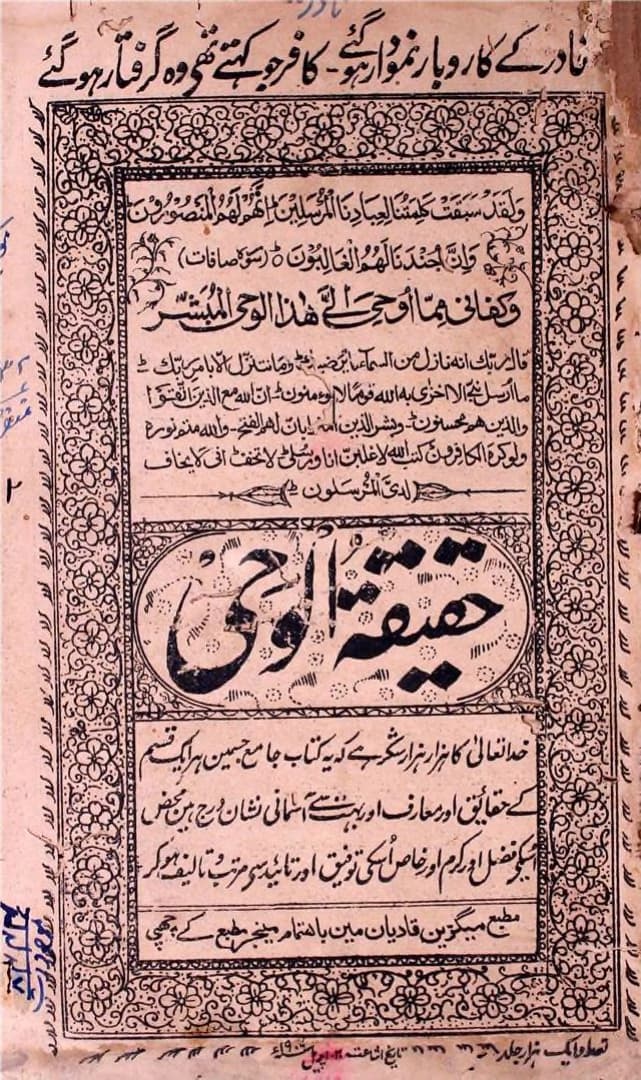 قادر کے کاروبار نمودار ہوگئے - کافر جو کہتے تھے وہ گرفتار ہوگئے
وَلَقَدْ سَبَقَتْ كَلِمَتُنَا لِعِبَادِنَا الْمُرْسَلِينَ اِنَّهُمْ لَهُمُ الْمَنْصُورُوْنَ
وَاِنَّ جُنْدَنَا لَهُمُ الْغَالِبُوْنَ (سورۃ صافات)
وكفانى مِمَّا اُوحِىَ اِلَىَّ هٰذَا الْوَحْىُ الْمُبَشِّرُ
قال ربك انه نازل من السماء ما يرضيك وما نتنزل الا بامر ربك
الا اخزى به الله قوما لا يؤمنون ان الله مع الذين اتقوا
والذين هم محسنون وبشر الذين امنوا بان لهم الفتح - والله متم نوره
ولو كره الكافرون كتب الله لاغلبن انا ورسلى لا تخف انى لا يخاف
لدىّ المرسلون
حقیقۃ الوحی
خدا تعالیٰ کا ہزار ہزار شکر ہے کہ یہ کتاب جامع جسمین ہر ایک قسم
کے حقایق اور معارف اور بہت سے آسمانی نشان درج ہین محض
اسکی فضل اور کرم اور خاص اُسکی توفیق اور تائید سی مرتب و تالیف ہو کر
مطبع میگزین قادیان مین باہتمام مینجر مطبع کے چھپی
تعداد ایک ہزار جلد
تاریخ اشاعت